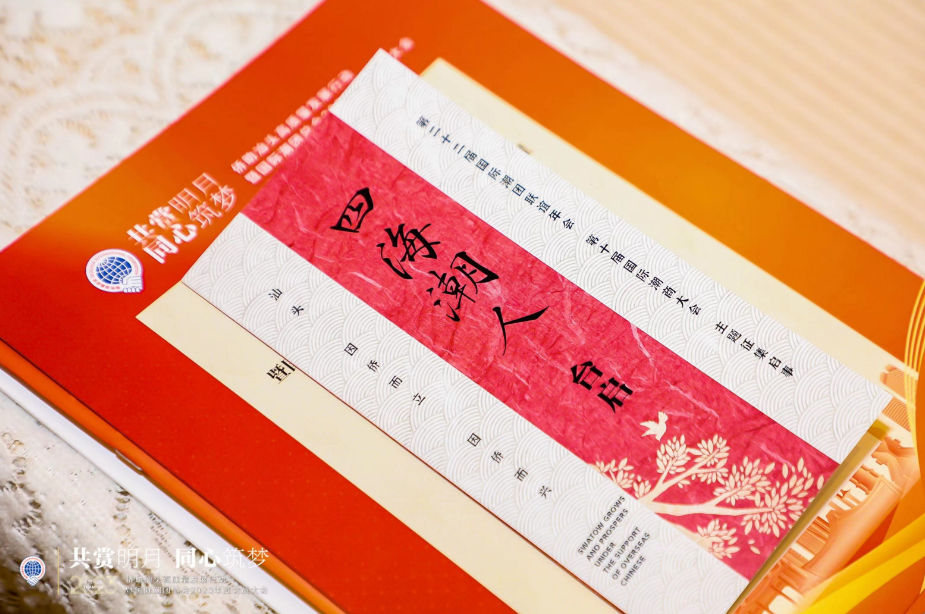 共赏明月
同心筑梦
第二十二届国际潮团联谊年会 第十届国际潮商大会 主题征集启事
四海潮人 台启
汕头 因侨而立 因侨而兴
SWATOW GROWS
AND PROSPERS
UNDER
THE SUPPORT
OF OVERSEAS
CHINESE
共赏明月 同心筑梦